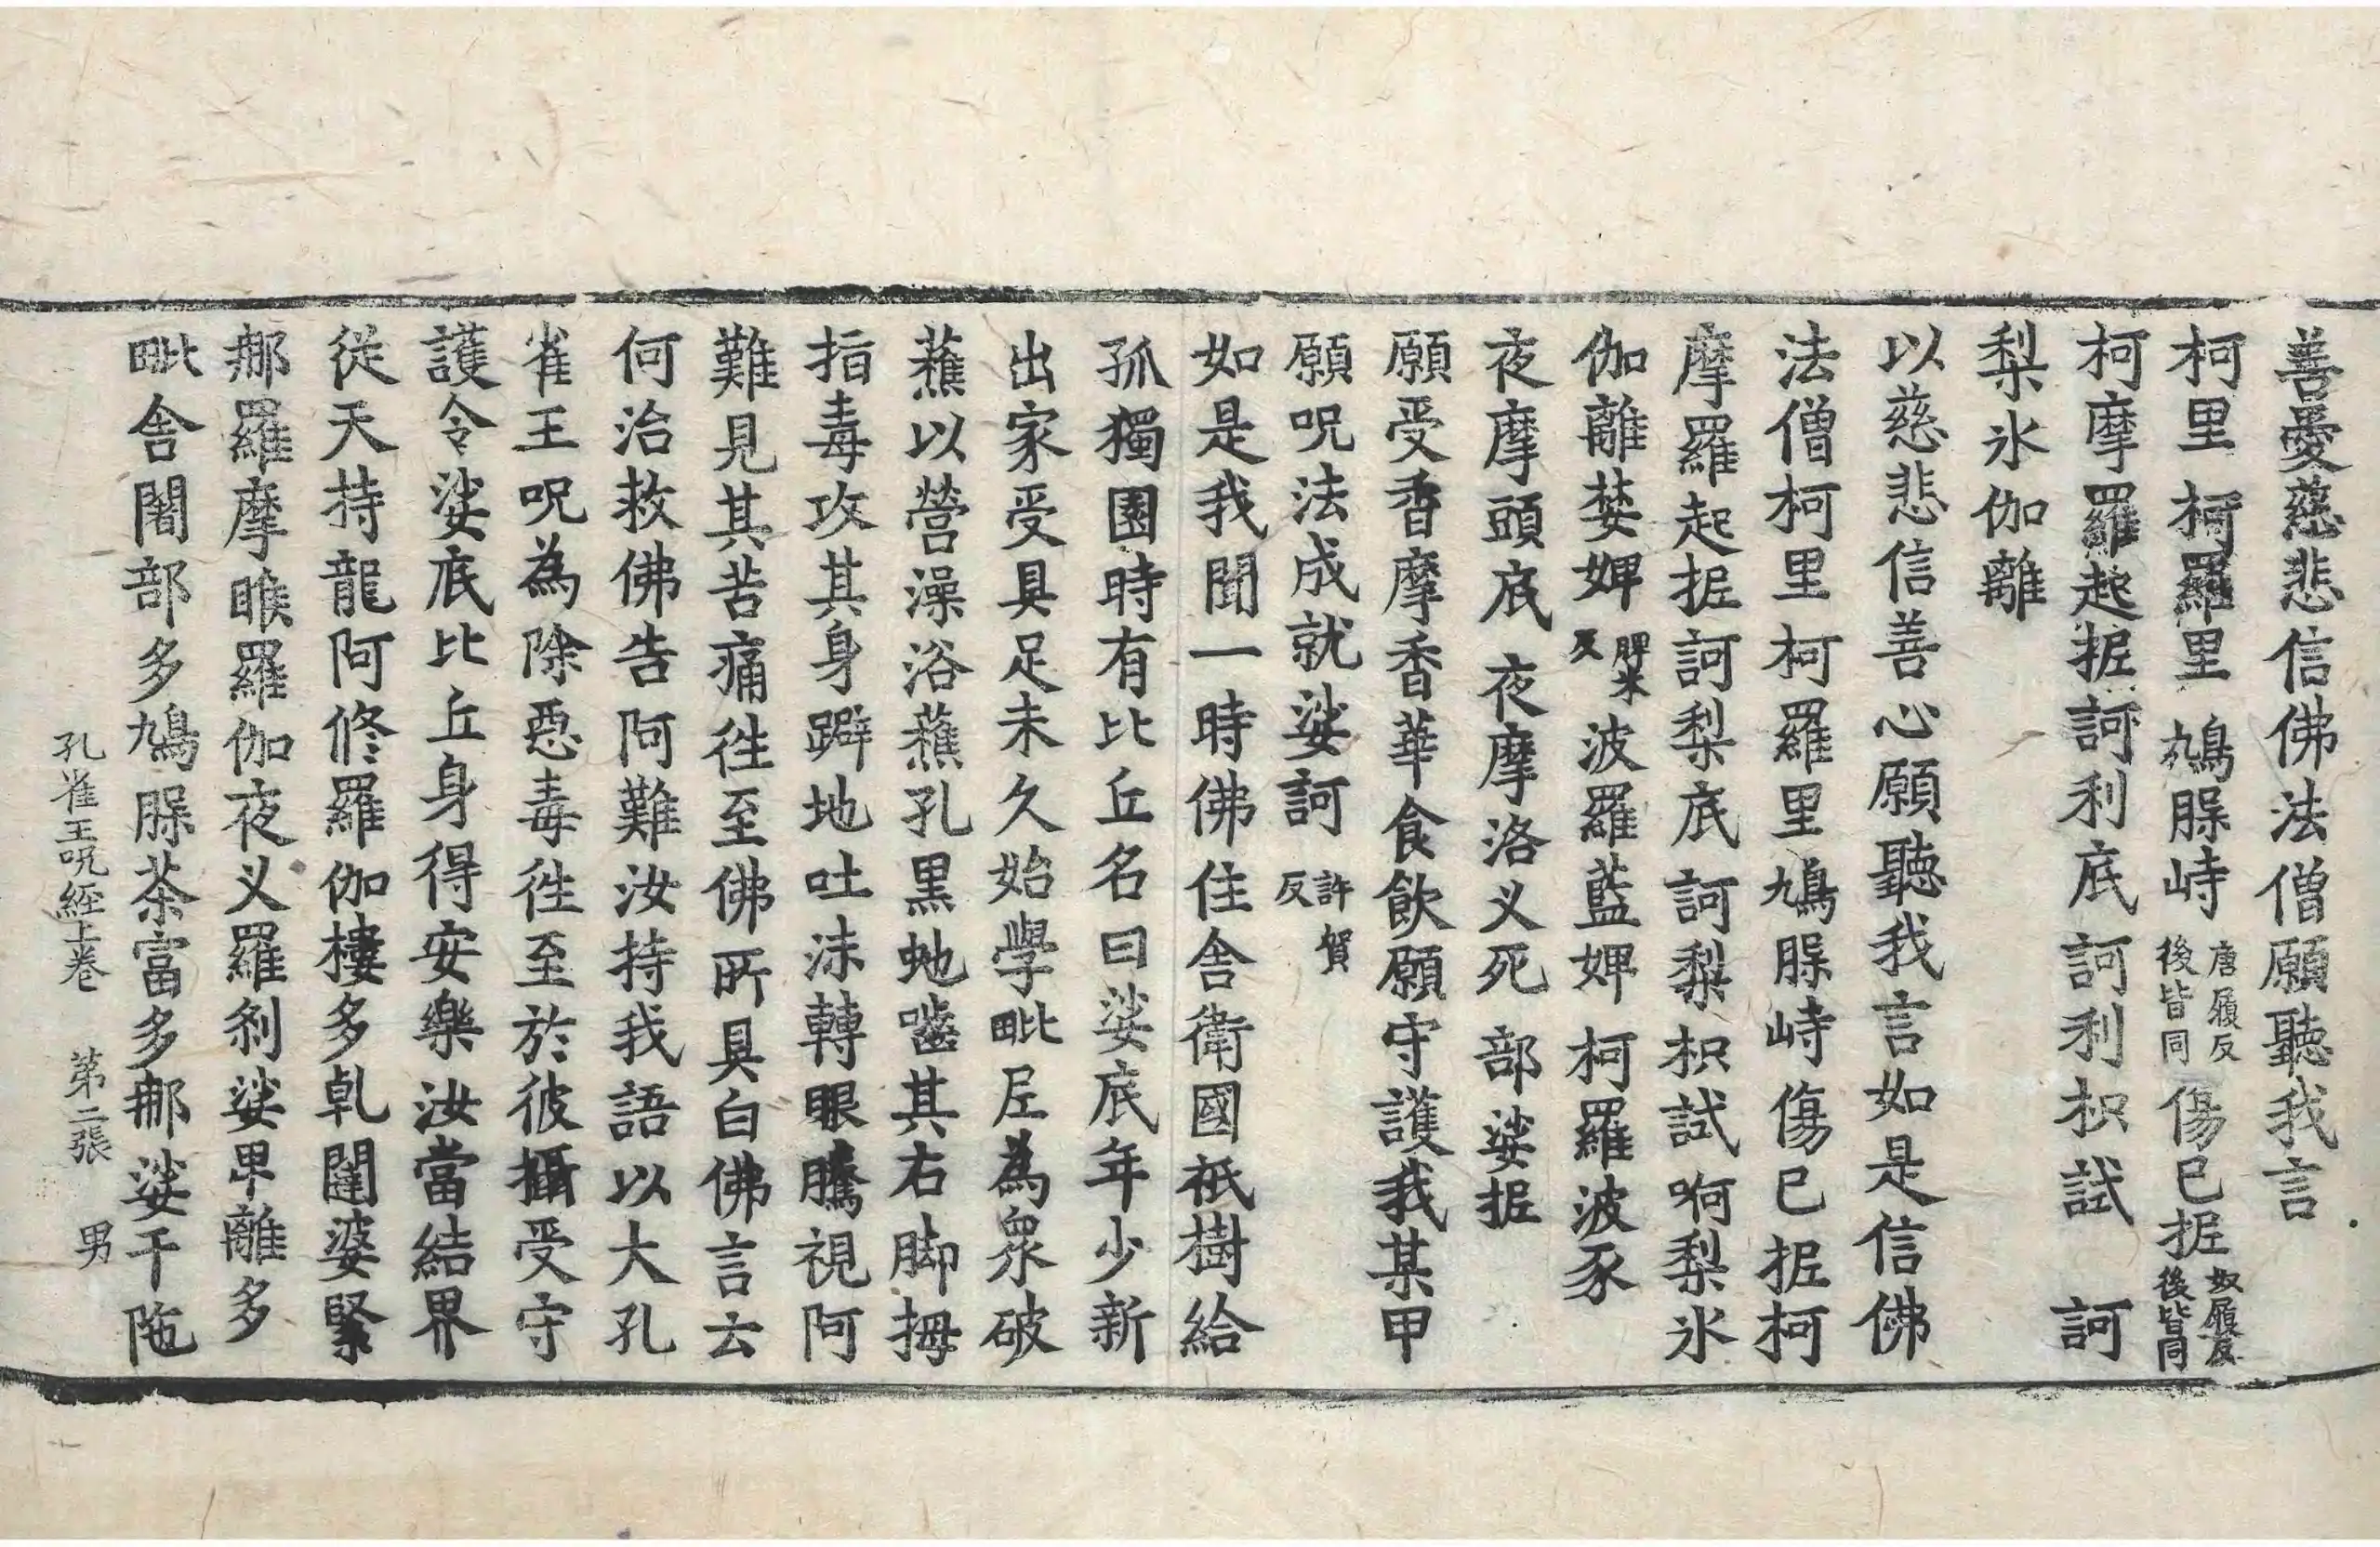 善愛慈悲信佛法僧願聽我言
柯里 柯羅里 鳩脲峙唐履反後皆同傷已抳奴履反後皆同
柯摩羅起抳訶利底訶利枳試 訶
梨氷伽離
以慈悲信善心願聽我言如是信佛
法僧柯里柯羅里鳩脲峙傷已抳柯
摩羅起抳訶梨底訶梨枳試呵梨氷
伽離婪婢脾米反波羅藍婢 柯羅波豕
夜摩頭底 夜摩洛义死 部娑抳
願受香摩香華食飲願守護我某甲
願呪法成就娑訶許賀反
如是我聞一時佛住舍衛國祇樹給
孤獨園時有比丘名曰娑底年少新
出家受具足未久始學毗尼為衆破
蕉以營澡浴蕉孔黑虵嚙其右脚拇
指毒攻其身躃地吐沫轉眼騰視阿
難見其苦痛徃至佛所具白佛言云
何治救佛告阿難汝持我語以大孔
雀王呪為除惡毒徃至於彼攝受守
護令娑底比丘身得安樂汝當結界
從天持龍阿修羅伽樓多乹闥婆緊
那羅摩睺羅伽夜义羅剎娑卑離多
毗舍闍部多鳩脲茶富多那娑干陁
孔雀王呪經上卷 第二張 男